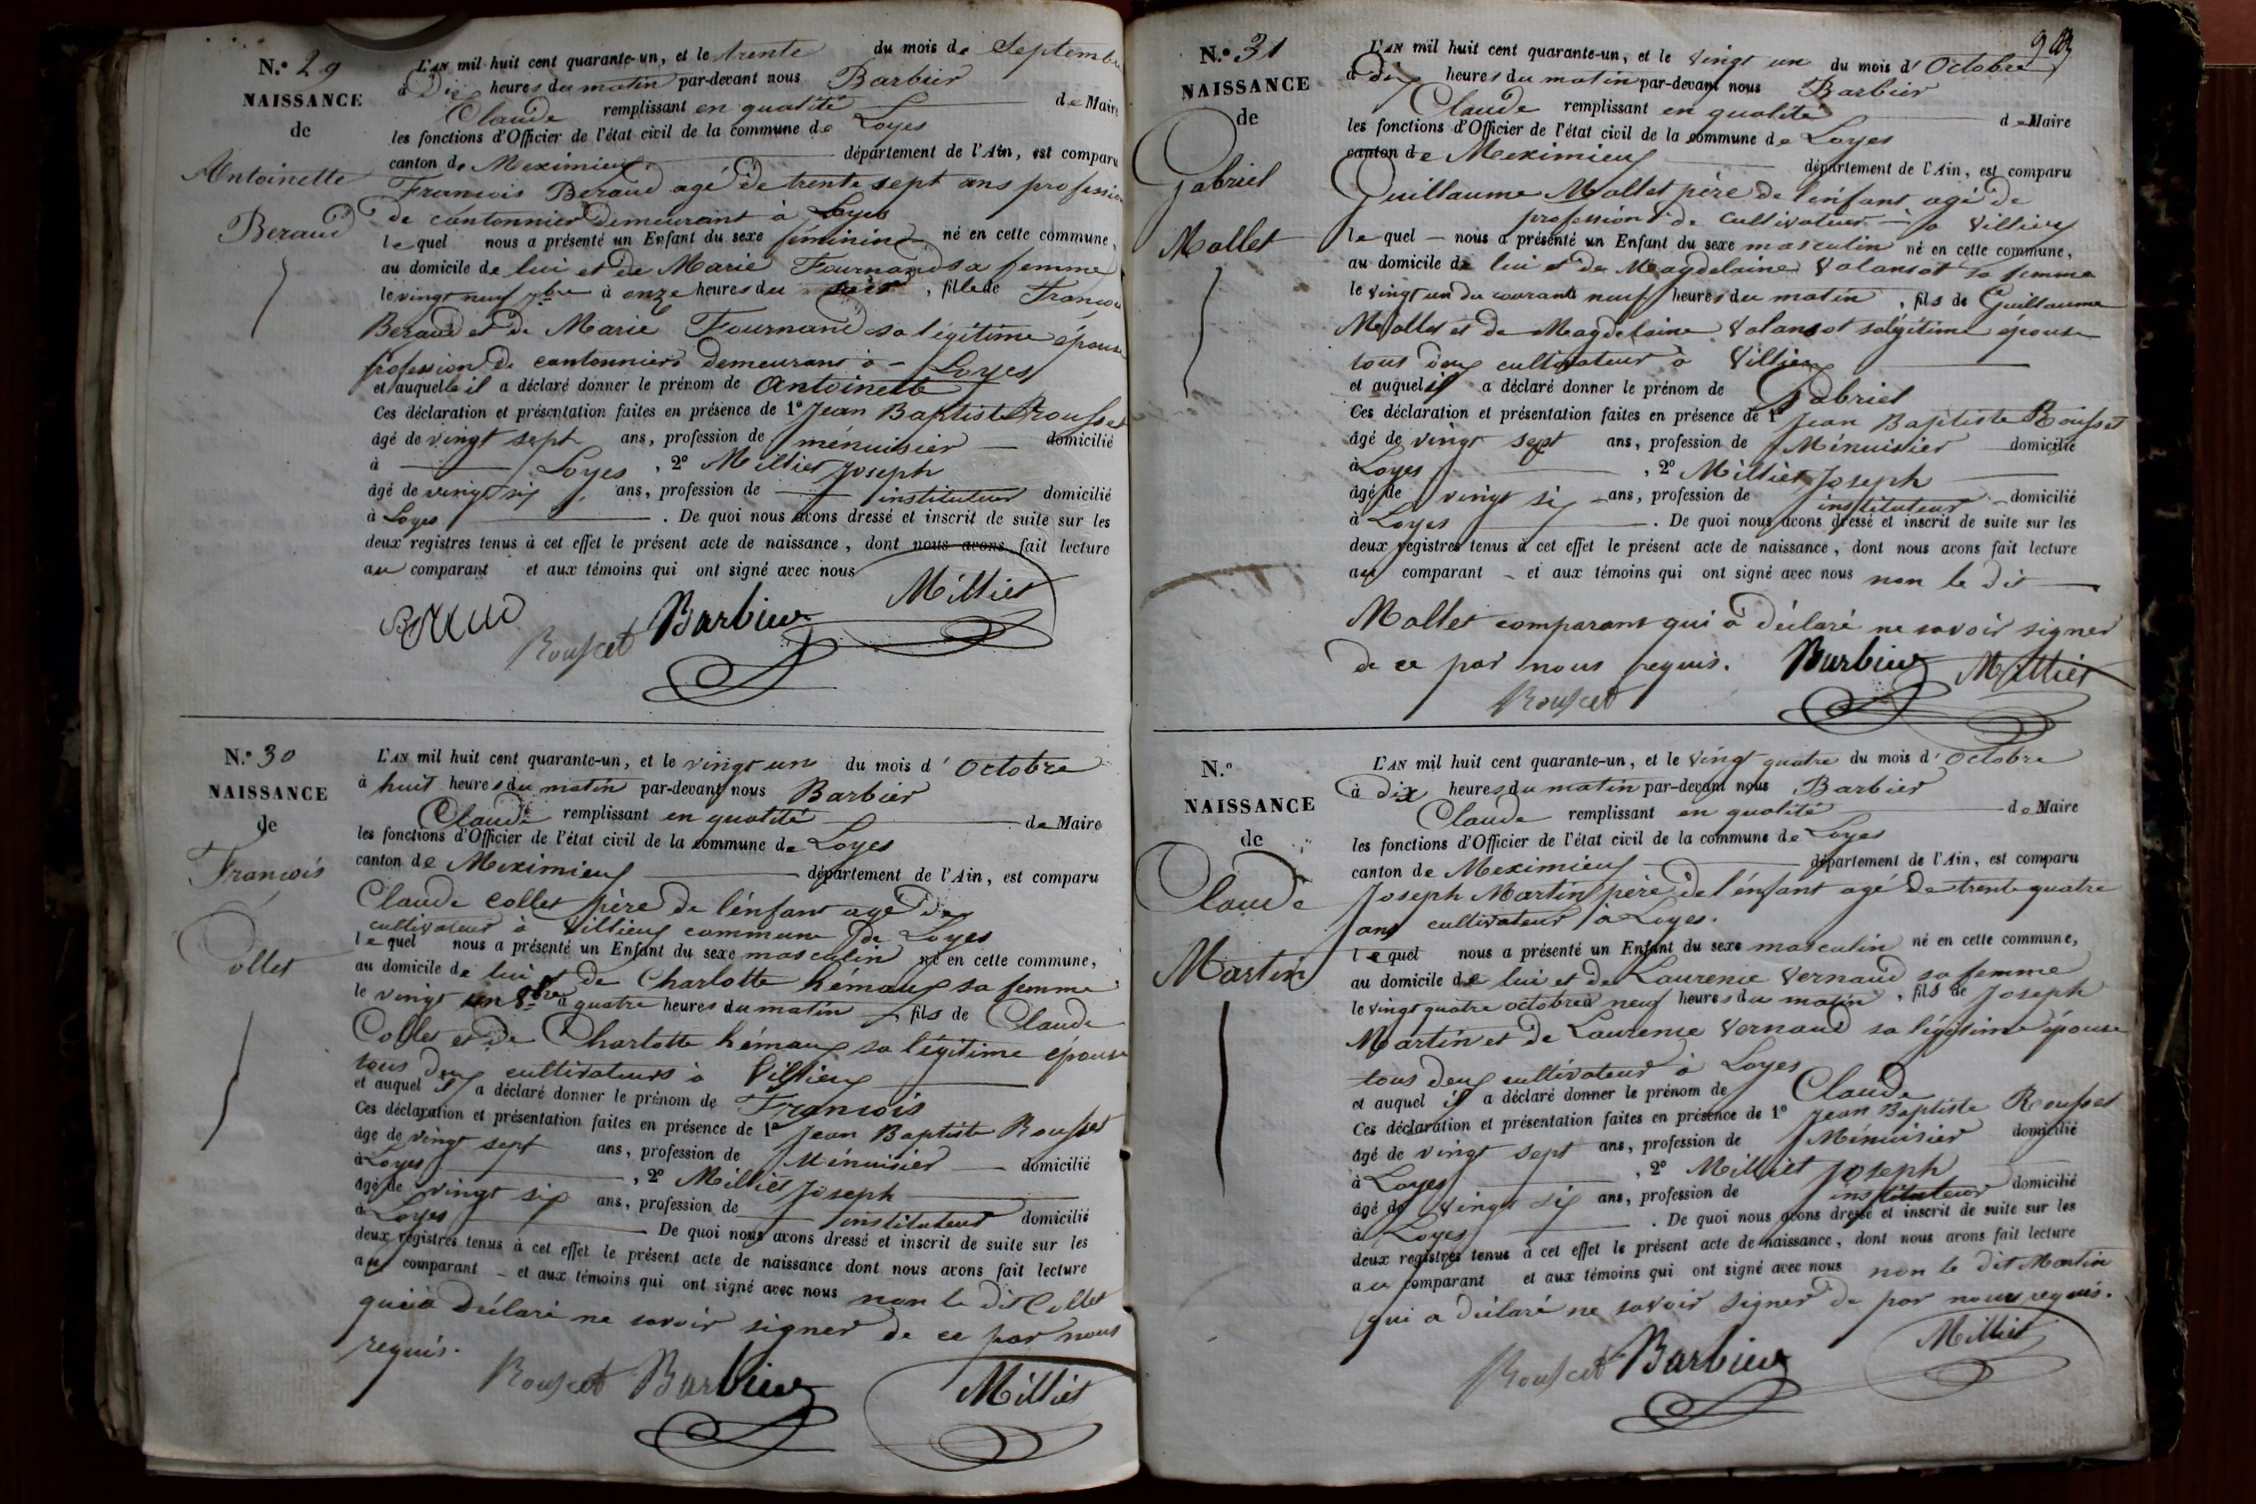 N.º 29
NAISSANCE
de
Antoinette
Beraud
L'AN mil huit cent quarante-un, et le trente du mois de Septembre
à Dix heures du matin par-devant nous Barbier
Claude remplissant en qualité de Maire
les fonctions d'Officier de l'état civil de la commune de Loyes
canton de Meximieux département de l'Ain, est comparu
François Beraud agé de trente sept ans profession
de cantonnier demeurant à Loyes
lequel nous a présenté un Enfant du sexe féminin né en cette commune,
au domicile de lui et de Marie Fournand sa femme
le vingt neuf 7bre à onze heures du soir, fille de François
Beraud et de Marie Fournand sa légitime épouse
profession de cantonnier demeurant à Loyes
et auquelle il a déclaré donner le prénom de Antoinette
Ces déclaration et présentation faites en présence de 1º Jean Baptiste Rousset
âgé de vingt sept ans, profession de ménuisier domicilié
à Loyes, 2º Milliet Joseph
âgé de vingt six ans, profession de instituteur domicilié
à Loyes. De quoi nous avons dressé et inscrit de suite sur les
deux registres tenus à cet effet le présent acte de naissance, dont nous avons fait lecture
au comparant et aux témoins qui ont signé avec nous
Milliet
Beraud Rousset Barbier
N.º 30
NAISSANCE
de
François
Collet
L'AN mil huit cent quarante-un, et le vingt un du mois d'Octobre
à huit heures du matin par-devant nous Barbier
Claude remplissant en qualité de Maire
les fonctions d'Officier de l'état civil de la commune de Loyes
canton de Meximieux département de l'Ain, est comparu
Claude Collet père de l'énfant agé de
cultivateur à Villieux commune de Loyes
lequel nous a présenté un Enfant du sexe masculin né en cette commune,
au domicile de lui et de Charlotte hémaux sa femme
le vingt un 8bre à quatre heures du matin, fils de Claude
Collet et de Charlotte hémaux sa légitime épouse
tous deux cultivateurs à Villieux
et auquel il a déclaré donner le prénom de François
Ces déclaration et présentation faites en présence de 1º Jean Baptiste Rousset
âgé de vingt sept ans, profession de Ménuisier domicilié
à Loyes, 2º Milliet Joseph
âgé de vingt six ans, profession de instituteur domicilié
à Loyes De quoi nous avons dressé et inscrit de suite sur les
deux registres tenus à cet effet le présent acte de naissance dont nous avons fait lecture
au comparant et aux témoins qui ont signé avec nous non le dit Collet
qui à déclaré ne savoir signer de ce par nous
requis.
Rousset Barbier Milliet
N.º 31
NAISSANCE
de
Gabriel
Mallet
L'AN mil huit cent quarante-un, et le vingt un du mois d'Octobre
à dix heures du matin par-devant nous Barbier
Claude remplissant en qualité de Maire
les fonctions d'Officier de l'état civil de la commune de Loyes
canton de Meximieux département de l'Ain, est comparu
Guillaume Mallet père de l'énfant agé de
profession de cultivateur à Villieux
lequel nous a présenté un Enfant du sexe masculin né en cette commune,
au domicile de lui et de Magdelaine Valansot sa femme
le vingt un du courant neuf heures du matin, fils de Guillaume
Mallet et de Magdelaine Valansot sa légitime épouse
tous deux cultivateur à Villieux
et auquel il a déclaré donner le prénom de Gabriel
Ces déclaration et présentation faites en présence de 1º Jean Baptiste Rousset
âgé de vingt sept ans, profession de Ménuisier domicilié
à Loyes, 2º Milliet Joseph
âgé de vingt six ans, profession de instituteur domicilié
à Loyes. De quoi nous avons dressé et inscrit de suite sur les
deux registres tenus à cet effet le présent acte de naissance, dont nous avons fait lecture
au comparant et aux témoins qui ont signé avec nous non le dit
Mallet comparant qui à déclaré ne savoir signer
de ce par nous requis. Barbier Milliet
Rousset
N.º
NAISSANCE
de
Claude
Martin
L'AN mil huit cent quarante-un, et le vingt quatre du mois d'Octobre
à dix heures du matin par-devant nous Barbier
Claude remplissant en qualité de Maire
les fonctions d'Officier de l'état civil de la commune de Loyes
canton de Meximieux département de l'Ain, est comparu
Joseph Martin père de l'énfant agé de trente quatre
ans cultivateur à Loyes.
lequel nous a présenté un Enfant du sexe masculin né en cette commune,
au domicile de lui et de Laurence Vernaud sa femme
le vingt quatre octobre à neuf heures du matin, fils de Joseph
Martin et de Laurence Vernaud sa légitime épouse
tous deux cultivateur à Loyes
et auquel il a déclaré donner le prénom de Claude
Ces déclaration et présentation faites en présence de 1º Jean Baptiste Rousset
âgé de vingt sept ans, profession de Ménuisier domicilié
à Loyes, 2º Milliet Joseph
âgé de vingt six ans, profession de instituteur domicilié
à Loyes. De quoi nous avons dressé et inscrit de suite sur les
deux registres tenus à cet effet le présent acte de naissance, dont nous avons fait lecture
au comparant et aux témoins qui ont signé avec nous non le dit Martin
qui a déclaré ne savoir signer de par nous requis.
Rousset Barbier Milliet